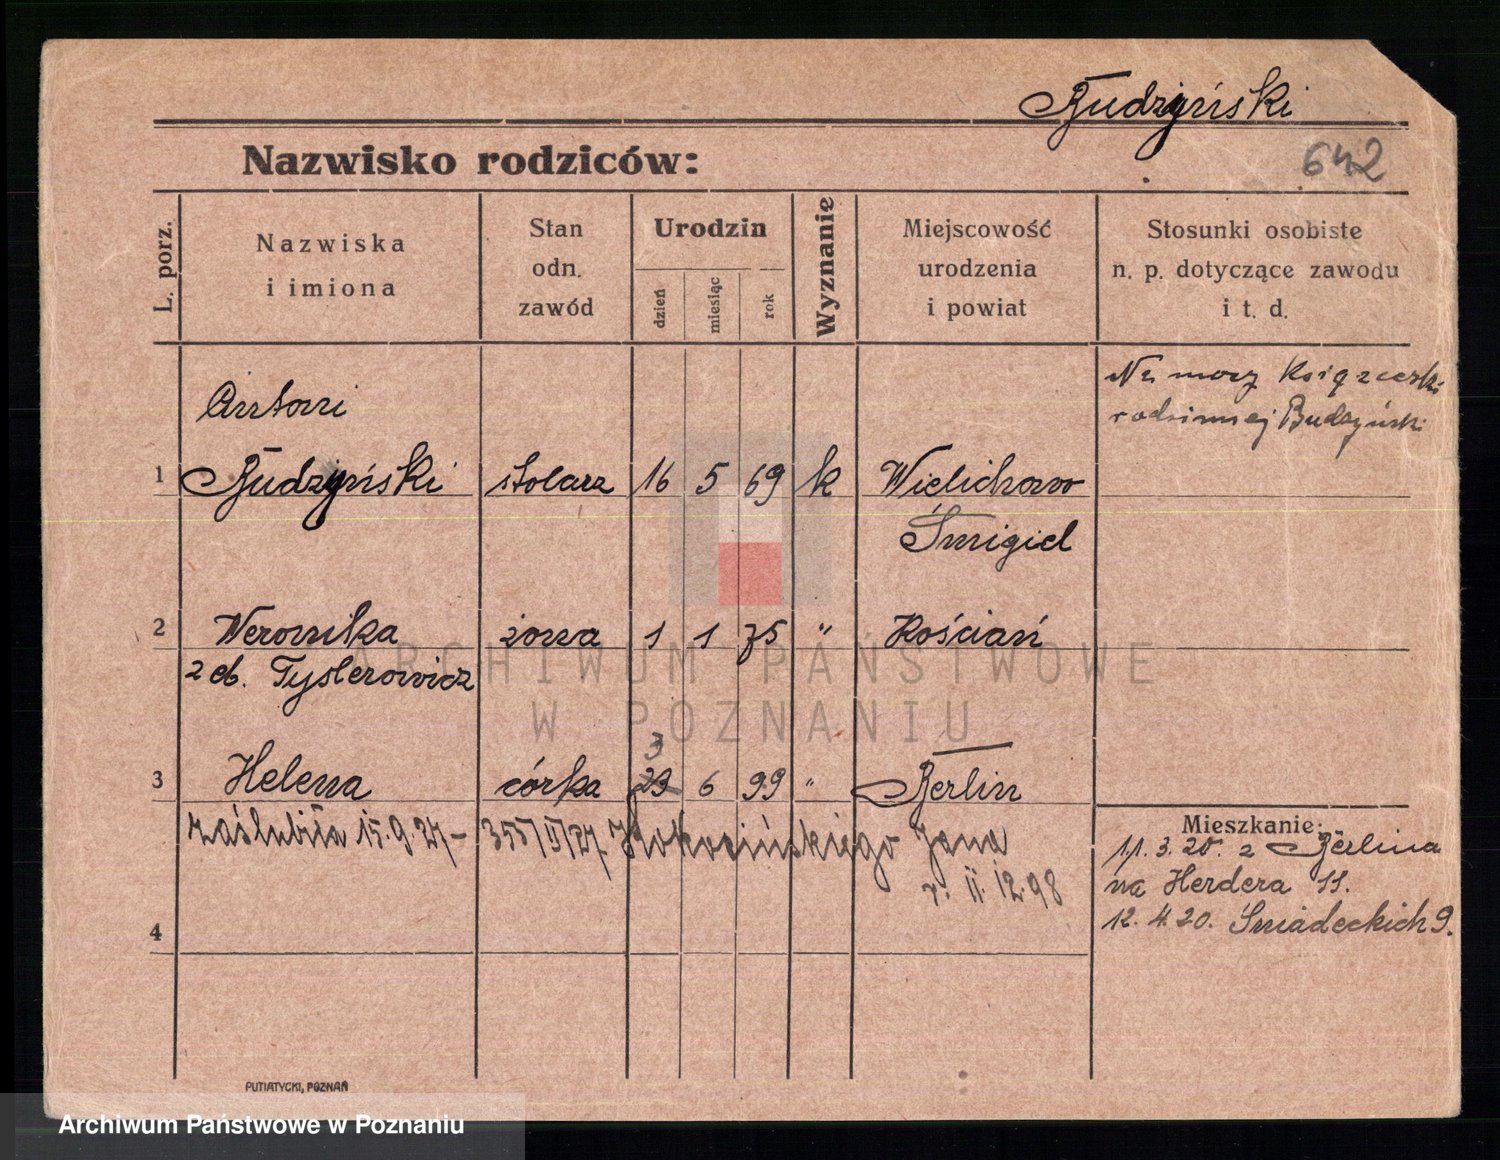 Budzyński
642
Nazwisko rodziców:
L. porz.
Nazwiska
i imiona
Stan
odn.
zawód
Urodzin
dzień
miesiąc
rok
Wyznanie
Miejscowość
urodzenia
i powiat
Stosunki osobiste
n. p. dotyczące zawodu
i t. d.
Na mocy Książeczki
rodzinnej Budzyński
Antoni
1 Budzyński stolarz 16 5 69 k Wielichowo
Śmigiel
2 Weronika żona 1 1 75 " Kościan
z d. Tyslerowicz
3
3 Helena córka 29 6 99 " Berlin
zaślubiła 15.9.27 – 355/II/27 Jana
r. 11.12.98
4
Mieszkanie:
11.3.20. z Berlina
na Herdera 11.
12.4.20. Śniadeckich 9.
PUTIATYCKI, POZNAŃ
ARCHIWUM PAŃSTWOWE
W POZNANIU
Archiwum Państwowe w Poznaniu